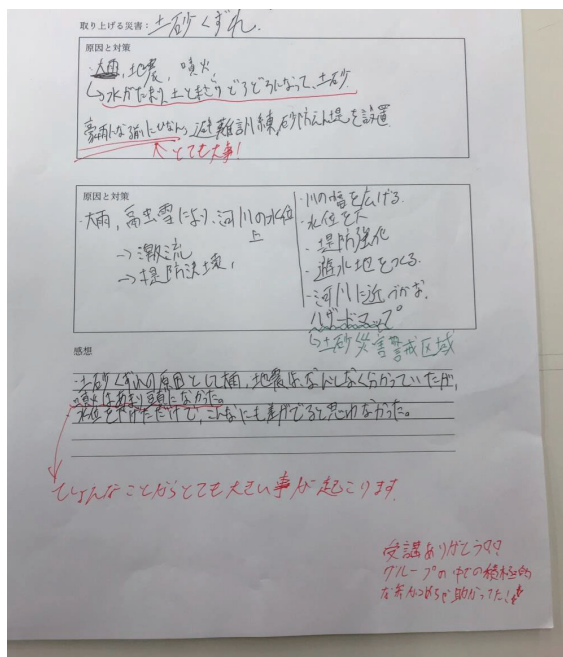 取り上げる災害: 土砂くずれ
原因と対策
・大雨, 地震, 噴火
↳水がたまり, 土とまざりどろどろになって、土砂.
豪雨になる前にひなん, 避難訓練, 砂防えん堤を設置
とても大事!
原因と対策
・大雨, 融雪により, 河川の水位上
→激流
→堤防決壊,
・川の幅を広げる.
・水位を下
・堤防強化
・遊水地をつくる.
・河川に近づかない
ハザードマップ
↳土砂災害警戒区域
感想
土砂くずれの原因として大雨, 地震はなんとなく分かっていたが,
噴火はあまり頭になかった。
水位を下げただけで, こんなにも差がでると思わなかった。
ひょんなことからとても大きい事が起こります.
受講ありがとう!!
グループの中での積極的
助かってた!